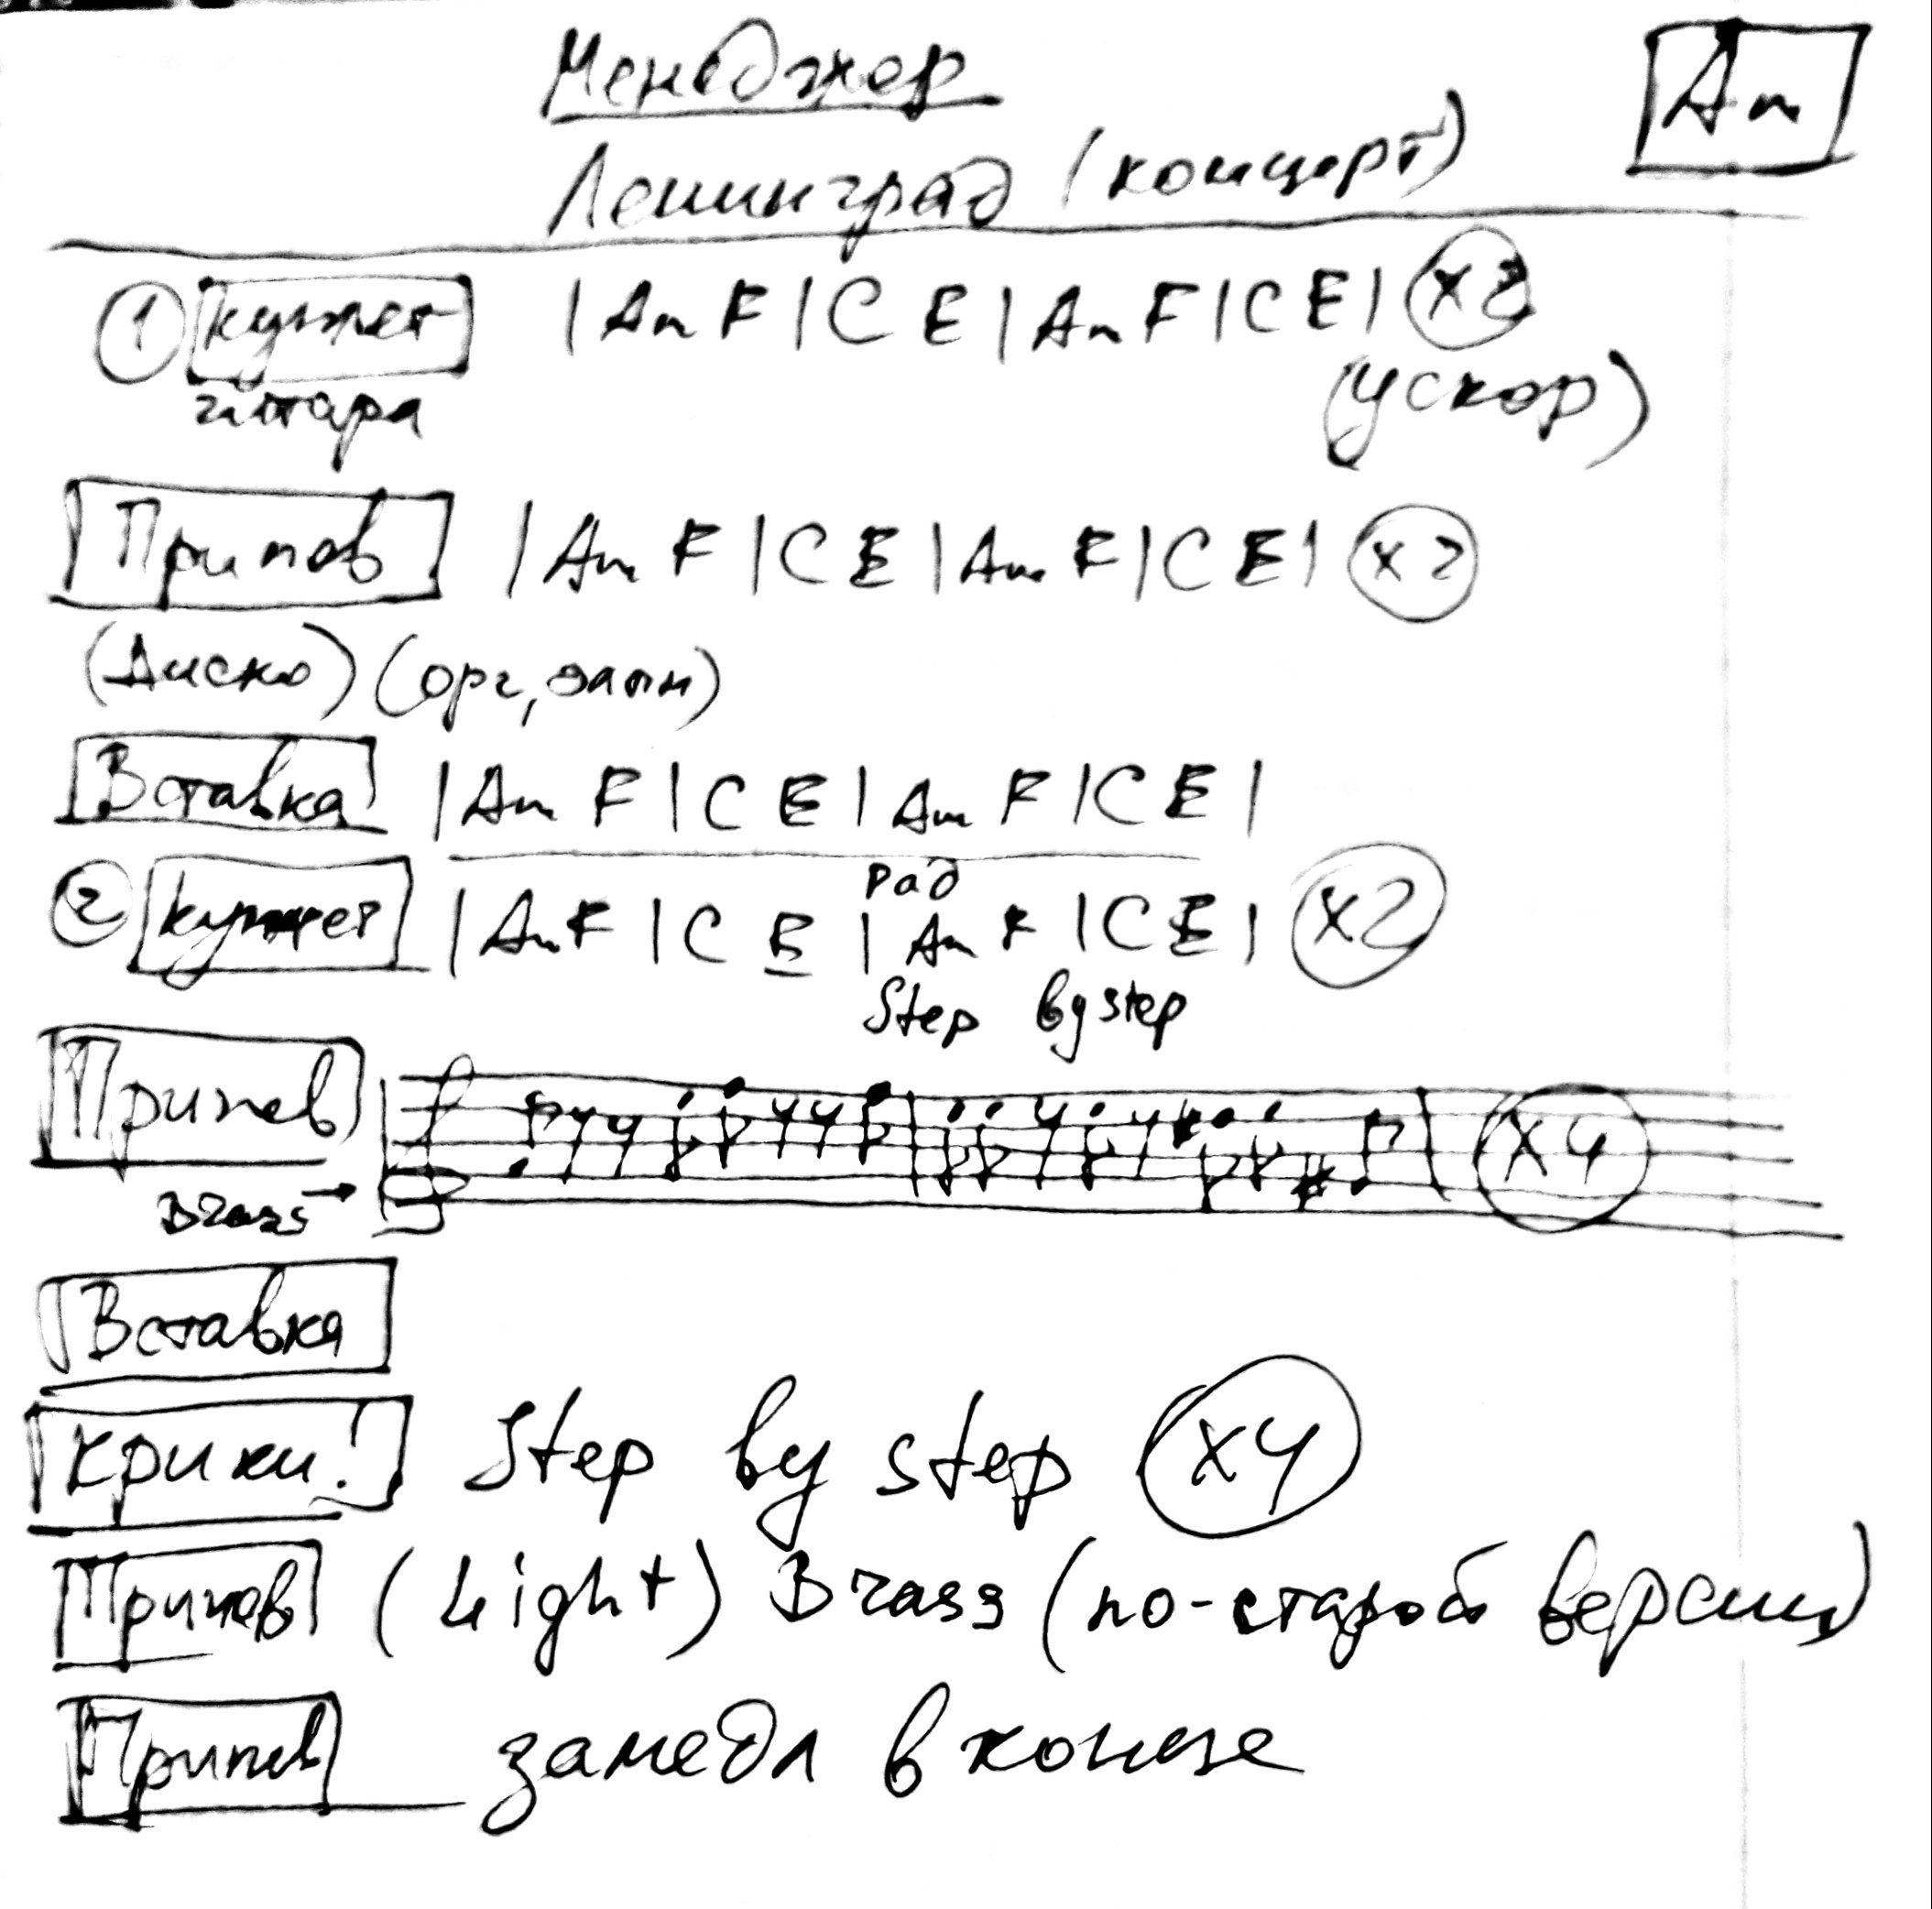 Менеджер
Am
Ленинград (концерт)
① Куплет | Am F | C E | Am F | C E |
гитара (ускор)
Припев | Am F | C E | Am F | C E | x2
(Диско) (орг,
Вставка | Am F | C E | Am F | C E |
Pad
② Куплет | Am F | C E | Am F | C E | x2
Step by step
Припев x4
Brass →
Вставка
Крики! Step by step x4
Припев (Light) Brass (по-старой версии)
Припев замедл в конце